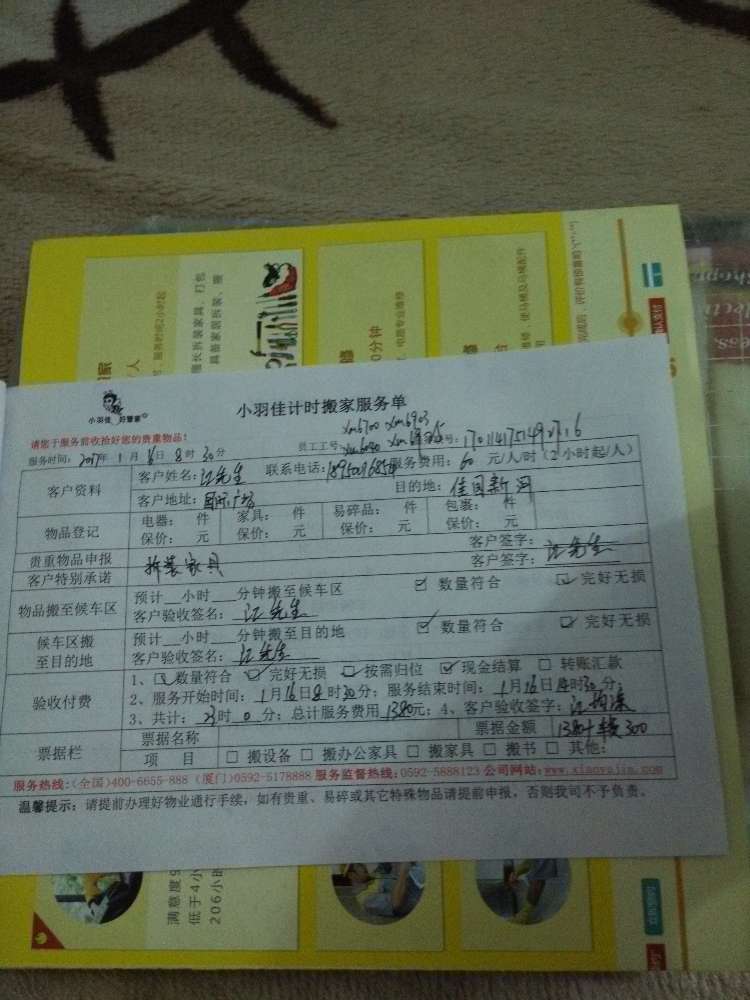 小羽佳 好管家
小羽佳计时搬家服务单
请您于服务前收拾好您的贵重物品!
员工工号: xm6700 xm6903
服务时间: 2017年 1月 16日 8时 30分
单号: 170114175149 2716
客户资料
客户姓名: 江先生 联系电话: 服务费用: 60 元/人/时 (2小时起/人)
客户地址: 国际广场 目的地: 佳园新村
物品登记
电器: 件 家具: 件 易碎品: 件 包裹: 件
保价: 元 保价: 元 保价: 元 保价: 元
贵重物品申报 客户签字:
客户特别承诺 拆装家具 客户签字: 江先生
物品搬至候车区
预计__小时__分钟搬至候车区 ☑ 数量符合 ☑ 完好无损
客户验收签名: 江先生
候车区搬至目的地
预计__小时__分钟搬至目的地 ☑ 数量符合 ☑ 完好无损
客户验收签名: 江先生
验收付费
1、☑数量符合 ☑完好无损 ☐按需归位 ☑现金结算 ☐ 转账汇款
2、服务开始时间: 1月16日8时30分; 服务结束时间: 1月16日14时30分;
3、共计: 23时 0分; 总计服务费用 1380元; 4、客户验收签字:
票据栏
票据名称 票据金额 1380+ 300
项 目 ☐ 搬设备 ☐ 搬办公家具 ☐ 搬家具 ☐ 搬书 ☐ 其他:
服务热线:(全国)400-6655-888 (厦门)0592-5178888 服务监督热线:0592-5888123 公司网站:www.xiaoyujia.com
温馨提示: 请提前办理好物业通行手续, 如有贵重、易碎或其它特殊物品请提前申报, 否则我司不予负责。
满意度
低于4小
206小时